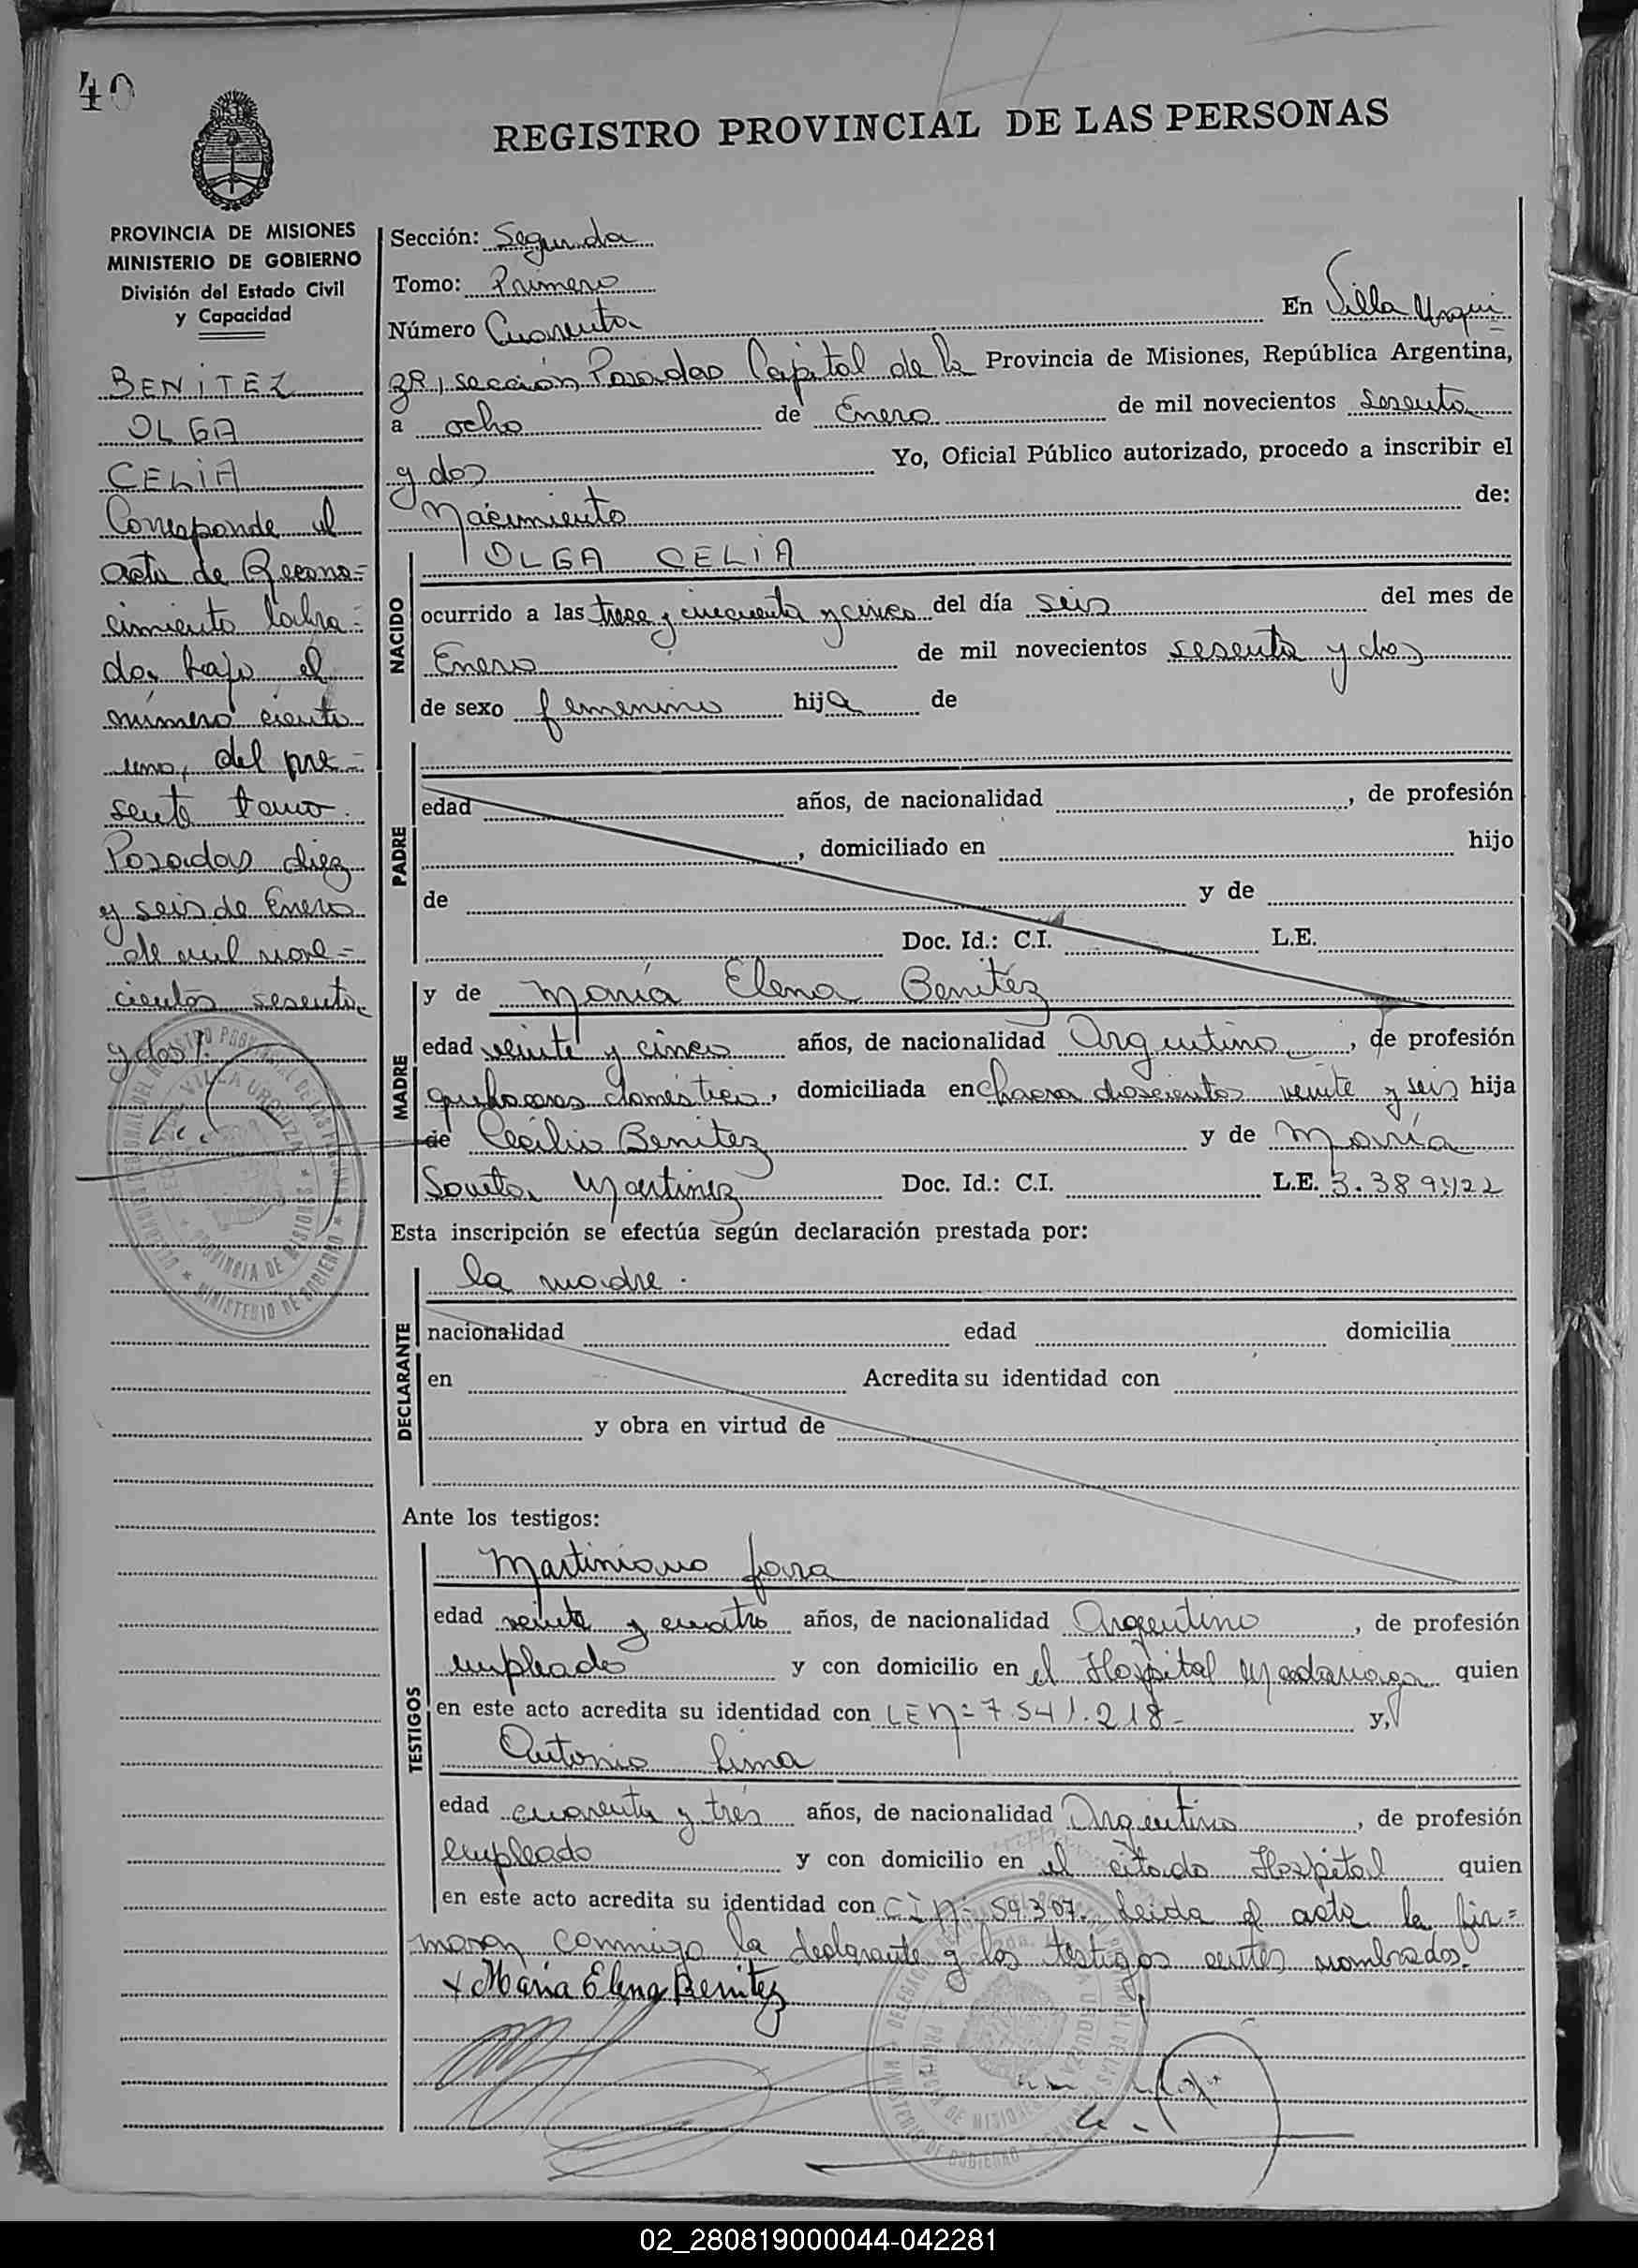 40
REGISTRO PROVINCIAL DE LAS PERSONAS
PROVINCIA DE MISIONES
MINISTERIO DE GOBIERNO
División del Estado Civil
y Capacidad
BENITEZ
OLGA
CELIA
Corresponde al
acta de Recono=
cimiento labra=
do, bajo el
número ciento
uno, del pre=
sente tomo.
Posadas diez
y seis de Enero
de mil nove=
cientos sesenta
y dos/.
Sección: Segunda
Tomo: Primero
Número Cuarenta En Villa Urqui
za, sección Posadas Capital de la Provincia de Misiones, República Argentina,
a ocho de Enero de mil novecientos sesenta
y dos Yo, Oficial Público autorizado, procedo a inscribir el
Nacimiento de:
NACIDO
OLGA CELIA
ocurrido a las trece y cincuenta y cinco del día seis del mes de
Enero de mil novecientos sesenta y dos
de sexo femenino hija de
PADRE
edad años, de nacionalidad , de profesión
, domiciliado en hijo
de y de
Doc. Id.: C.I. L.E.
MADRE
y de María Elena Benítez
edad veinte y cinco años, de nacionalidad Argentina, de profesión
quehaceres domésticos, domiciliada en chacra doscientos veinte y seis hija
de Cecilio Benitez y de María
Martinez Doc. Id.: C.I. L.E. 3.389.422
Esta inscripción se efectúa según declaración prestada por:
DECLARANTE
la madre.
nacionalidad edad domicilia
en Acredita su identidad con
y obra en virtud de
Ante los testigos:
TESTIGOS
Martiniano Jara
edad veinte y cuatro años, de nacionalidad Argentino, de profesión
empleado y con domicilio en el Hospital Madariaga quien
en este acto acredita su identidad con LE Nº 7.541.218- y,
Antonio Lima
edad cuarenta y tres años, de nacionalidad Argentino, de profesión
empleado y con domicilio en el citado Hospital quien
en este acto acredita su identidad con CI Nº 59.307. Leida el acta la fir=
maron conmigo la declarante y los testigos antes nombrados.
x María Elena Benítez
02_280819000044-042281